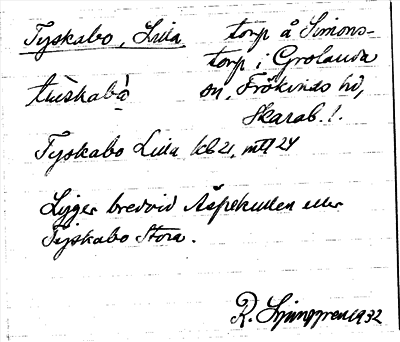 Tyskabo, Lilla torp å Simons-
torp i Grolanda
tüskabò sn, Frökinds hd,
Skarab. l.
Tyskabo Lilla kb 21, mtl 24
Ligger bredvid Äspekullen eller
Tyskabo Stora.
R. Ljunggren 1932